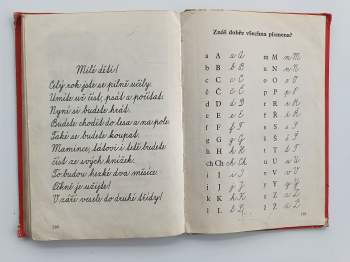 Milé děti!
Celý rok jste se pilně učily.
Umíte už číst, psát a počítat.
Nyní si budete hrát.
Budete chodit do lesa a na pole.
Také se budete koupat.
Mamince, tátovi i tetě budete
číst ze svých knížek.
To budou hezké dva měsíce.
Pěkně je užijte!
V září vesele do druhé třídy!
Znáš dobře všechna písmena?
a A a A
b B b B
c C c C
č Č č Č
d D d D
e E e E
f F f F
g G g G
h H h H
ch Ch ch Ch
i I i I
j J j J
k K k K
l L l L
m M m M
n N n N
o O o O
p P p P
r R r R
ř Ř ř Ř
s S s S
š Š š Š
t T t T
u U u U
v V v V
y Y y Y
z Z z Z
ž Ž ž Ž